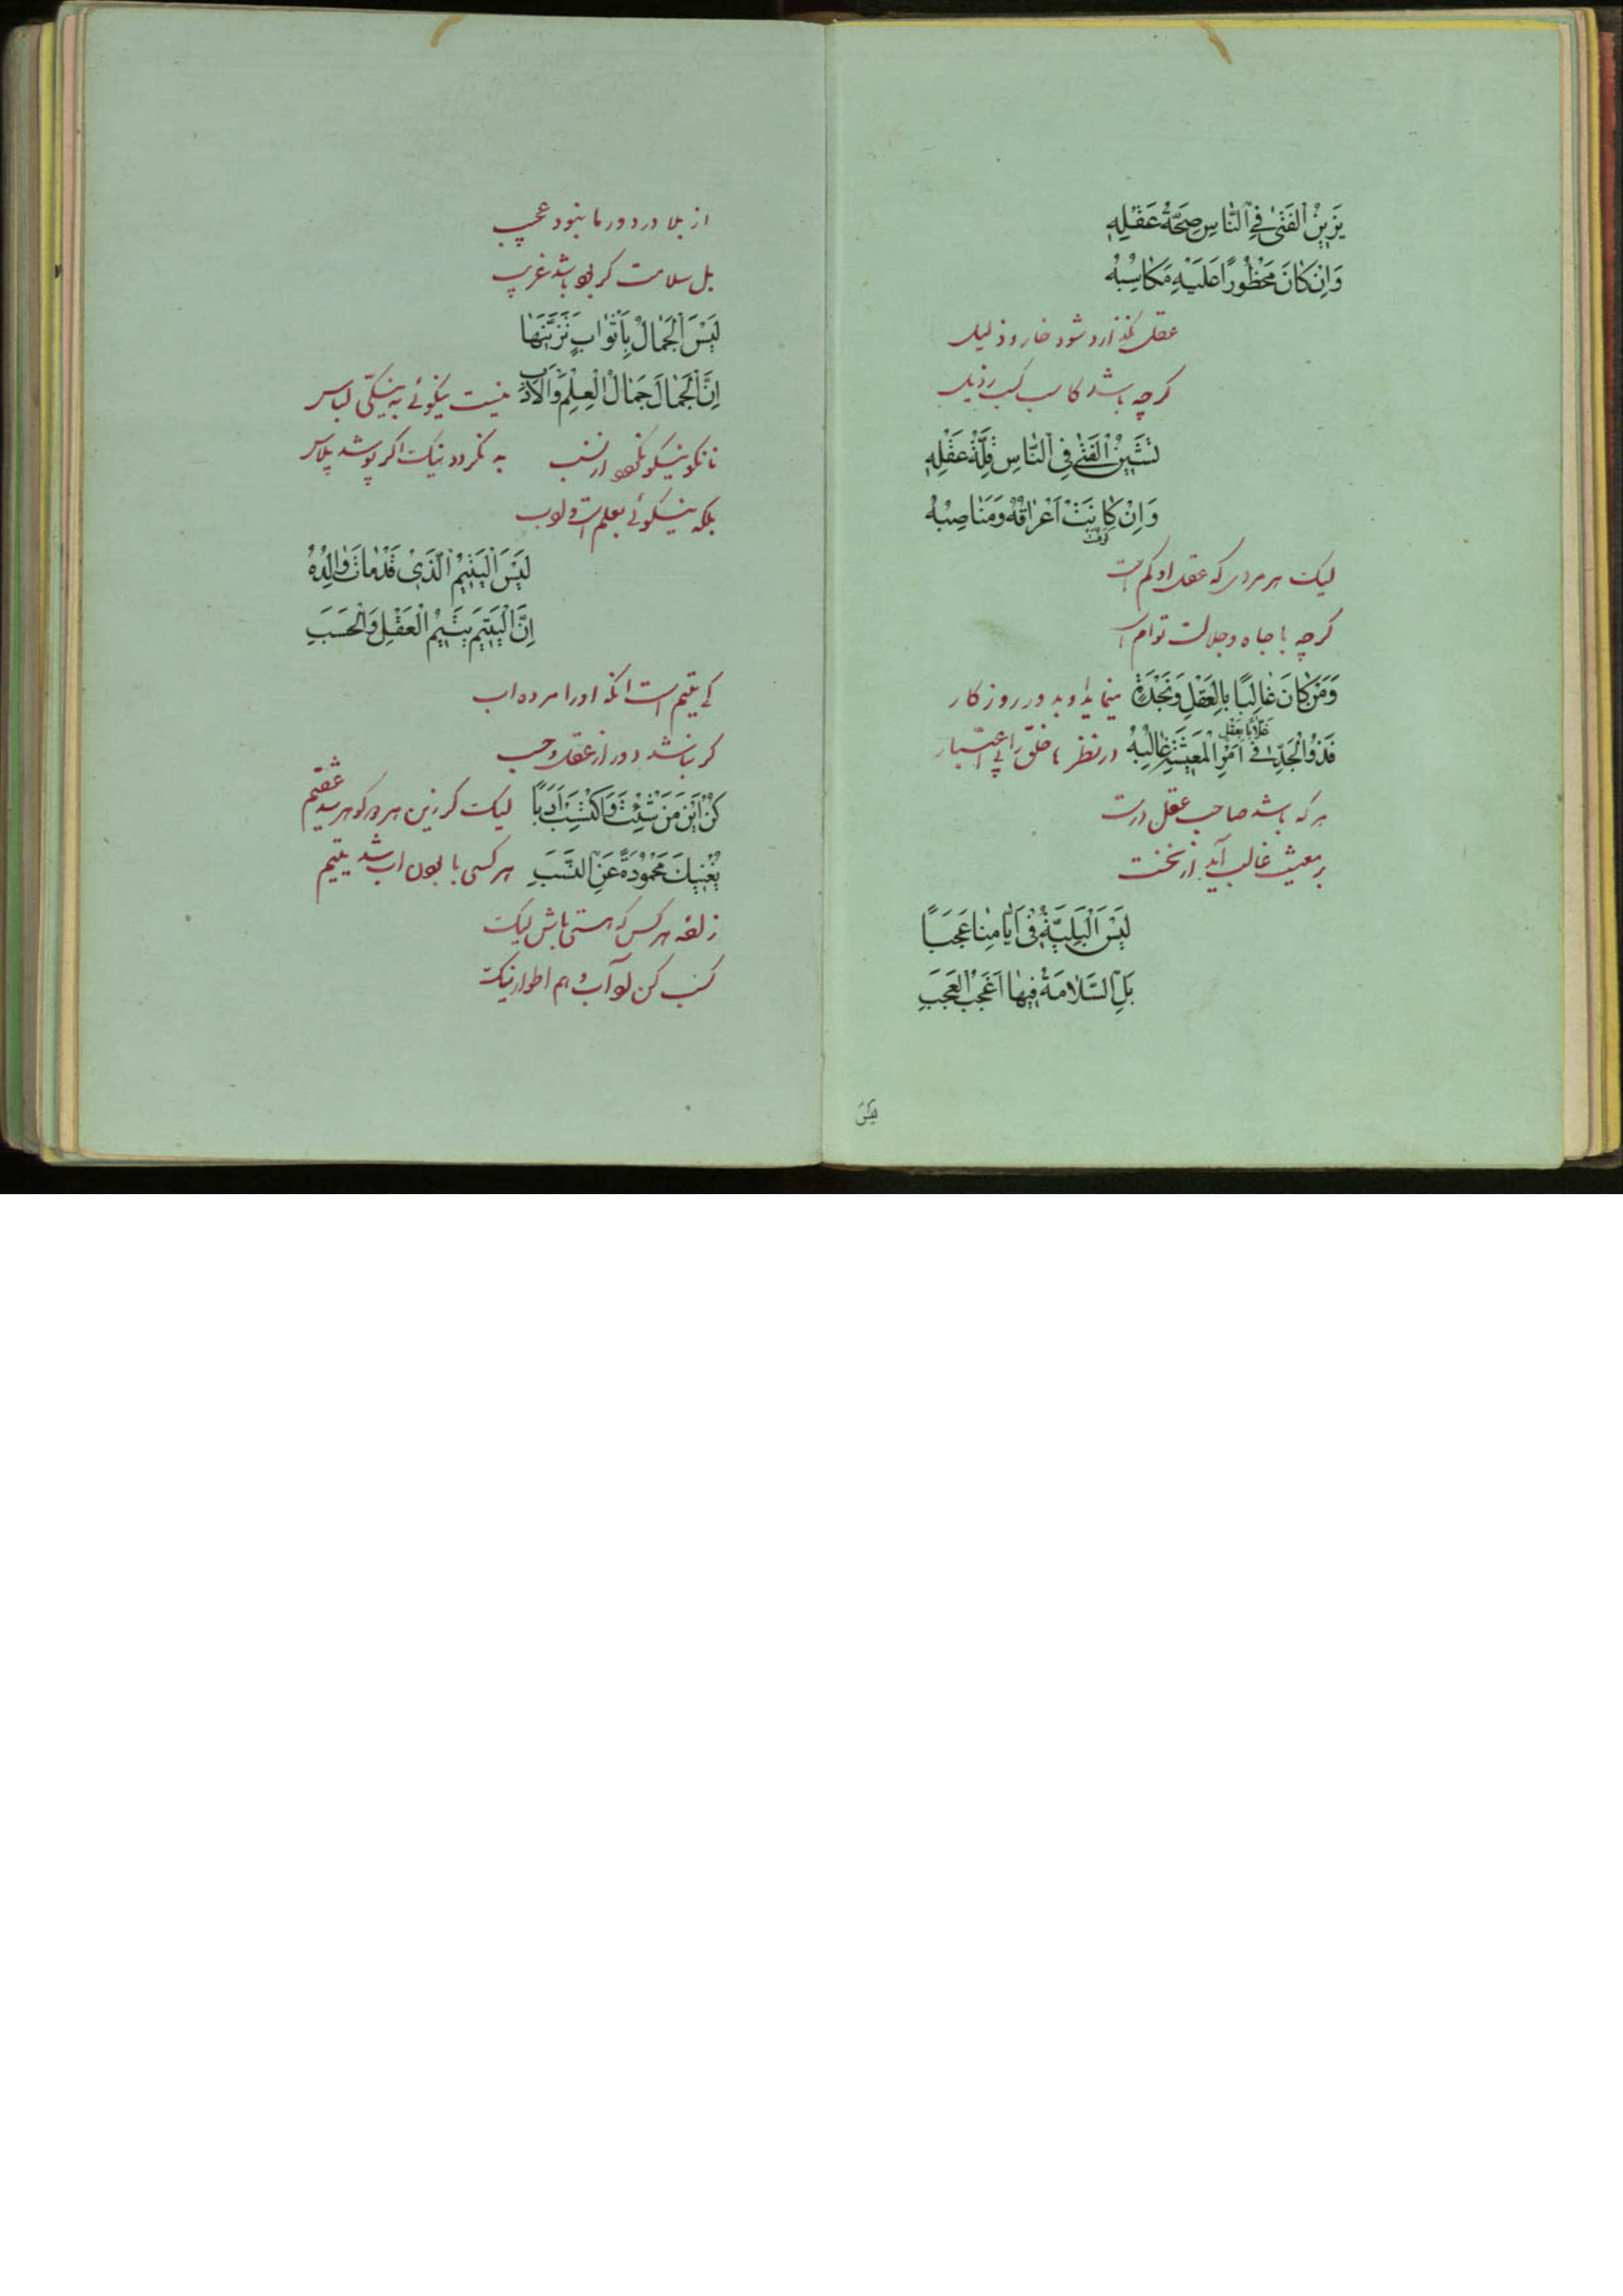 يَزِينُ الْفَتىٰ فِي النّٰاسِ صِحَّةُ عَقْلِهِ
وَاِنْ كٰانَ مَحْظُورًا عَلَيْهِ مَكٰاسِبُهُ
عقل نگذارد شود خار و ذلیل
کرچه باشد کاسب کسب رذیل
تَشِينُ الْفَتىٰ فِي النّٰاسِ قِلَّةُ عَقْلِهِ
وَاِنْ كٰانَتْ اَعْرٰاقُهُ وَمَنٰاصِبُهُ
كَرُمَتْ
لیک هر مردی که عقل او کم است
کرچه با جاه و جلالت توام است
وَمَنْ كٰانَ غٰالِبًا بِالْعَقْلِ وَنَجْدَةٍ مینماید او بد در روزکار
فَذُو الْجَدِّ فِي اَمْرِ الْمَعِيشَةِ غٰالِبُهُ در نظر خلق را بی اعتبار
غَلّٰابًا بِعَقْلٍ
هرکه باشد صاحب عقل درست
بر معیشت غالب آید از نخست
لَيْسَ الْبَلِيَّةُ فِي اَيّٰامِنٰا عَجَبًا
بَلِ السَّلٰامَةُ فِيهٰا اَعْجَبُ الْعَجَبِ
لَيْسَ
از بلا در دور ما نبود عجب
بل سلامت کر بود باشد غریب
لَيْسَ الْجَمٰالُ بِاَثْوٰابٍ تُزَيِّنُهٰا
اِنَّ الْجَمٰالَ جَمٰالُ الْعِلْمِ وَالْاَدَبِ نیست نیکوئی به نیکی لباس
نانکو نیکو نکردد از نسب به نکردد نیک اکر پوشد پلاس
بلکه نیکوئی بعلم است و ادب
لَيْسَ الْيَتِيمُ الَّذِي قَدْ مٰاتَ وٰالِدُهُ
اِنَّ الْيَتِيمَ يَتِيمُ الْعَقْلِ وَالْحَسَبِ
کی یتیم است انکه او را مرده اب
کر نباشد دور از عقل و حسب
كُنْ اِبْنَ مَنْ شِئْتَ وَاكْتَسِبْ اَدَبًا لیک کر زین هر دو کوهر شد عقیم
يُغْنِيكَ مَحْمُودَةً عَنِ النَّسَبِ هر کسی با بودن اب شد یتیم
زاده هر کس که هستی باش لیک
کسب کن آداب و هم اطوار نیک